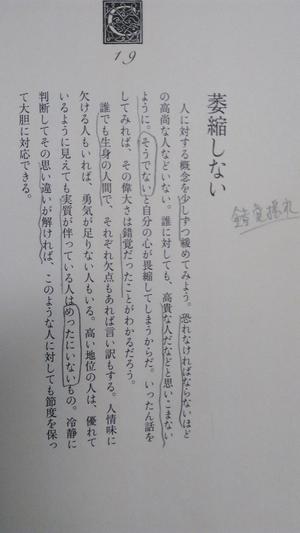 19
萎縮しない
人に対する概念を少しずつ緩めてみよう。恐れなければならないほど
の高尚な人などいない。誰に対しても、高貴な人だなどと思いこまない
ように。そうでないと自分の心が畏縮してしまうからだ。いったん話を
してみれば、その偉大さは錯覚だったことがわかるだろう。
誰でも生身の人間で、それぞれ欠点もあれば言い訳もする。人情味に
欠ける人もいれば、勇気が足りない人もいる。高い地位の人は、優れて
いるように見えても実質が伴っている人はめったにいないもの。冷静に
判断してその思い違いが解ければ、このような人に対しても節度を保っ
て大胆に対応できる。